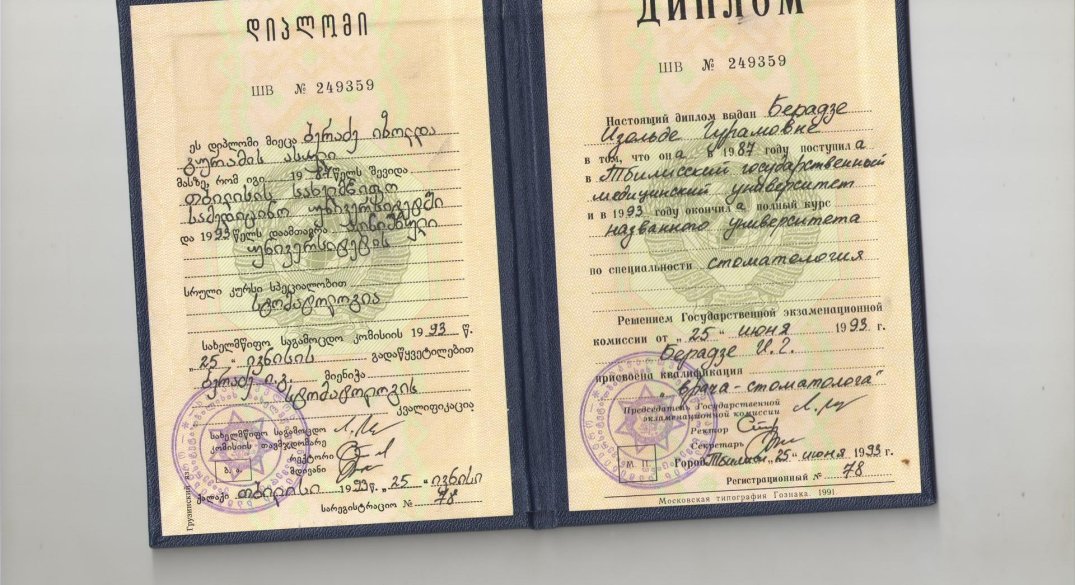 დიპლომი
ШВ № 249359
ეს დიპლომი მიეცა ბერაძე იზოლდა
გურამის ასული
მასზე, რომ იგი 1987 წელს შევიდა
თბილისის სახელმწიფო
სამედიცინო უნივერსიტეტში
და 1993 წელს დაამთავრა აღნიშნული
უნივერსიტეტის
სრული კურსი სპეციალობით
სტომატოლოგია
სახელმწიფო საგამოცდო კომისიის 1993 წ.
„25" ივნისის გადაწყვეტილებით
ბერაძე ი.გ. მიენიჭა
სტომატოლოგის
კვალიფიკაცია
სახელმწიფო საგამოცდო
კომისიის თავმჯდომარე
რექტორი
ბ. ა. მდივანი
ქალაქი თბილისი 1993 წ. „25" ივნისი
სარეგისტრაციო № 78
Грузинский яз.
ДИПЛОМ
ШВ № 249359
Настоящий диплом выдан Берадзе
Изольде Гурамовне
в том, что она в 1987 году поступила
в Тбилисский государственный
медицинский университет
и в 1993 году окончила полный курс
названного университета
по специальности стоматология
Решением Государственной экзаменационной
комиссии от „25" июня 1993 г.
Берадзе И.Г.
присвоена квалификация
„врача-стоматолога"
Председатель Государственной
экзаменационной комиссии
Ректор
Секретарь
М. П. Город Тбилиси „25" июня 1993 г.
Регистрационный № 78
Московская типография Гознака. 1991.